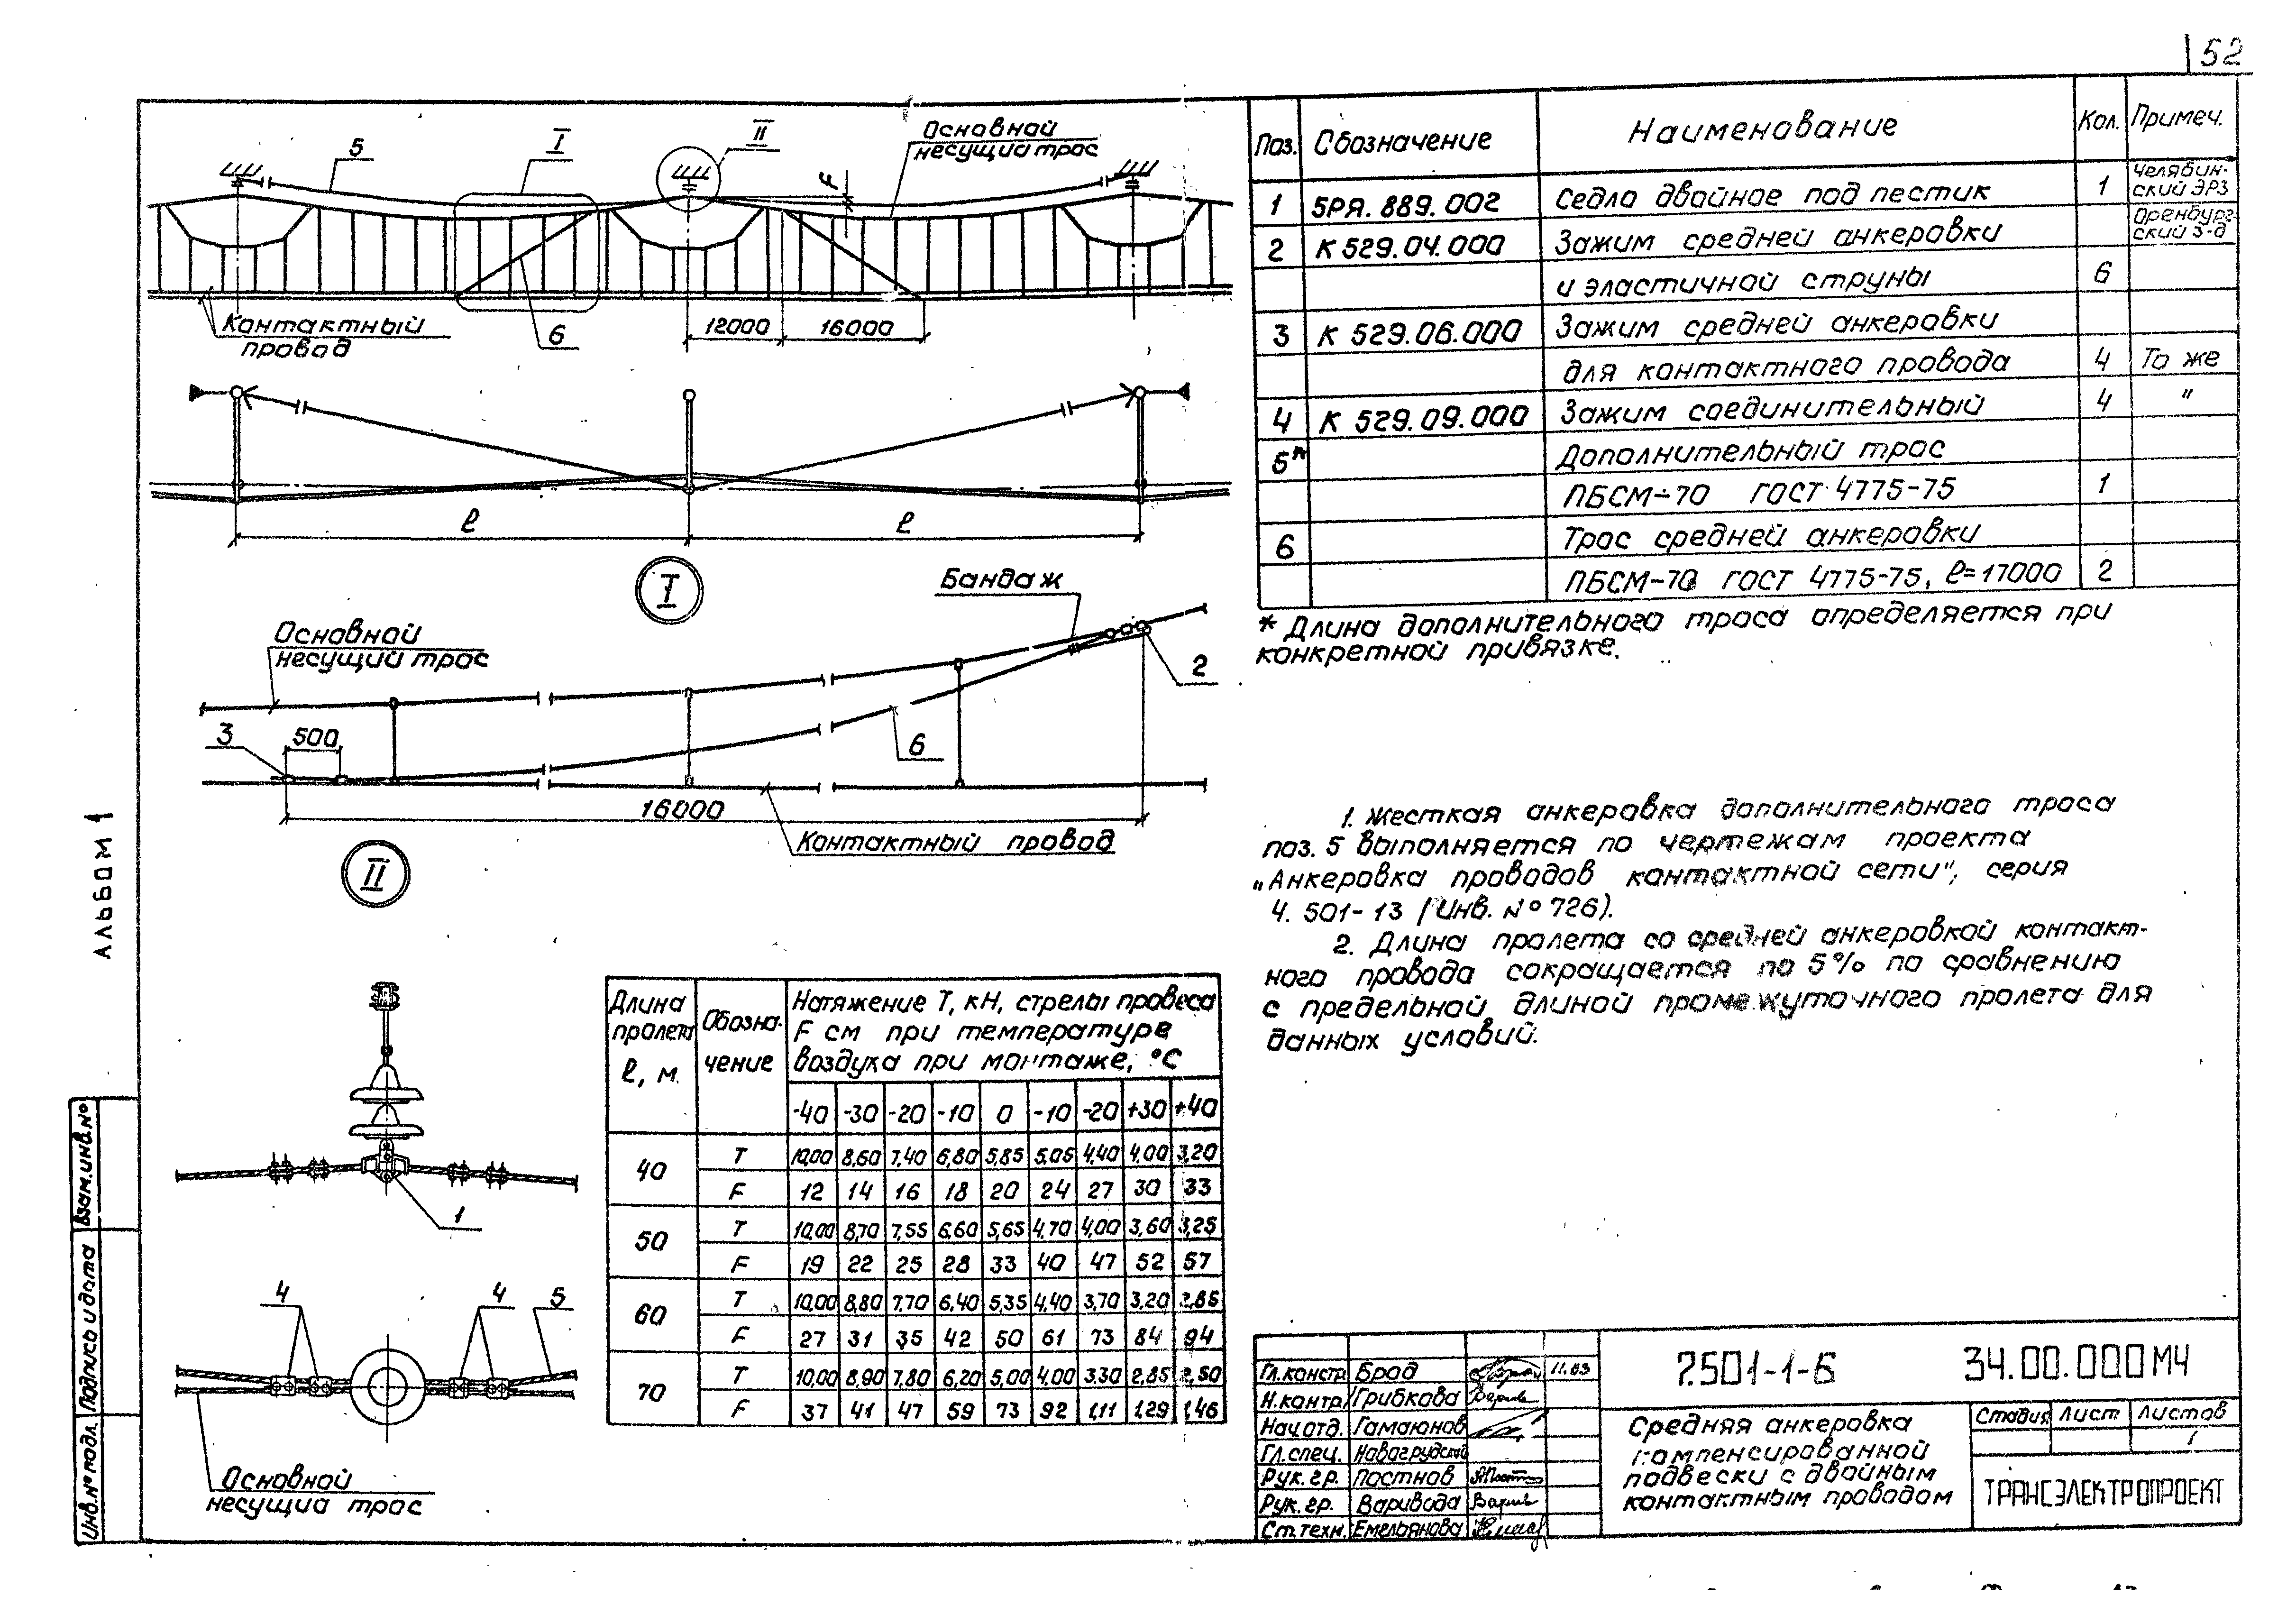 52
5
I
II
Основной
несущий трос
F
Контактный
провод
6
12000
16000
ℓ
ℓ
I
Бандаж
Основной
несущий трос
2
3
500
6
16000
Контактный провод
II
1
4
4
5
Основной
несущий трос
АЛЬБОМ 1
Взам.инв.№
Подпись и дата
Инв.№ подл.
Поз. Обозначение Наименование Кол. Примеч.
1 5РЯ.889.002 Седло двойное под пестик 1 Челябин-
ский ЭРЗ
2 К 529.04.000 Зажим средней анкеровки Оренбург-
ский з-д
и эластичной струны 6
3 К 529.06.000 Зажим средней анкеровки
для контактного провода 4 То же
4 К 529.09.000 Зажим соединительный 4 "
5* Дополнительный трос
ПБСМ-70 ГОСТ 4775-75 1
6 Трос средней анкеровки
ПБСМ-70 ГОСТ 4775-75, ℓ=17000 2
* Длина дополнительного троса определяется при
конкретной привязке.
1. Жесткая анкеровка дополнительного троса
поз. 5 выполняется по чертежам проекта
„Анкеровка проводов контактной сети", серия
4.501-13 (Инв. №726).
2. Длина пролета со средней анкеровкой контакт-
ного провода сокращается на 5% по сравнению
с предельной длиной промежуточного пролета для
данных условий.
Длина
пролета
ℓ, м.
Обозна-
чение
Натяжение Т, кН, стрелы провеса
F см при температуре
воздуха при монтаже, °С
-40 -30 -20 -10 0 -10 -20 +30 +40
40 Т 10,00 8,60 7,40 6,80 5,85 5,05 4,40 4,00 3,20
F 12 14 16 18 20 24 27 30 33
50 Т 10,00 8,70 7,55 6,60 5,65 4,70 4,00 3,60 3,25
F 19 22 25 28 33 40 47 52 57
60 Т 10,00 8,80 7,70 6,40 5,35 4,40 3,70 3,20 2,85
F 27 31 35 42 50 61 73 84 94
70 Т 10,00 8,90 7,80 6,20 5,00 4,00 3,30 2,85 2,50
F 37 41 47 59 73 92 1,11 1,29 1,46
Гл.констр. Брод 11.83
Н.контр. Грибкова
Нач.отд. Гамаюнов
Гл.спец. Новогрудский
Рук.гр. Постнов
Рук.гр. Варивода
Ст.техн. Емельянова
7.501-1-6 34.00.000МЧ
Средняя анкеровка
компенсированной
подвески с двойным
контактным проводом
Стадия Лист Листов
1
ТРАНСЭЛЕКТРОПРОЕКТ